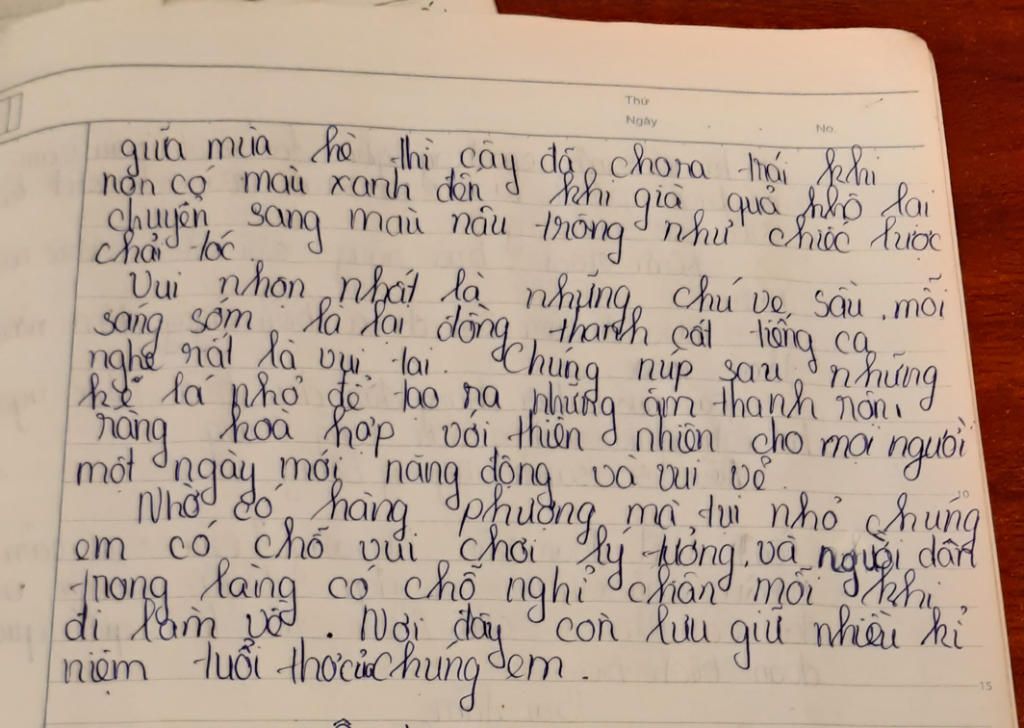 Thứ
Ngày
No.
giữa mùa hè thì cây đã chora trái khi
non có màu xanh đến khi già quả khô lại
chuyển sang màu nâu trông như chiếc lược
chải tóc.
Vui nhộn nhất là những chú ve sầu. mỗi
sáng sớm là lại đồng thanh cất tiếng ca
nghe rất là vui tai. Chúng núp sau những
kẽ lá nhỏ để tạo ra những âm thanh rộn
ràng hoà hợp với thiên nhiên cho mọi người
một ngày mới năng động và vui vẻ.
Nhờ có hàng phượng mà tụi nhỏ chúng
em có chỗ vui chơi lý tưởng, và người dân
trong làng có chỗ nghỉ chân mỗi khi
đi làm về. Nơi đây còn lưu giữ nhiều kỉ
niệm tuổi thơ của chúng em.
10
15